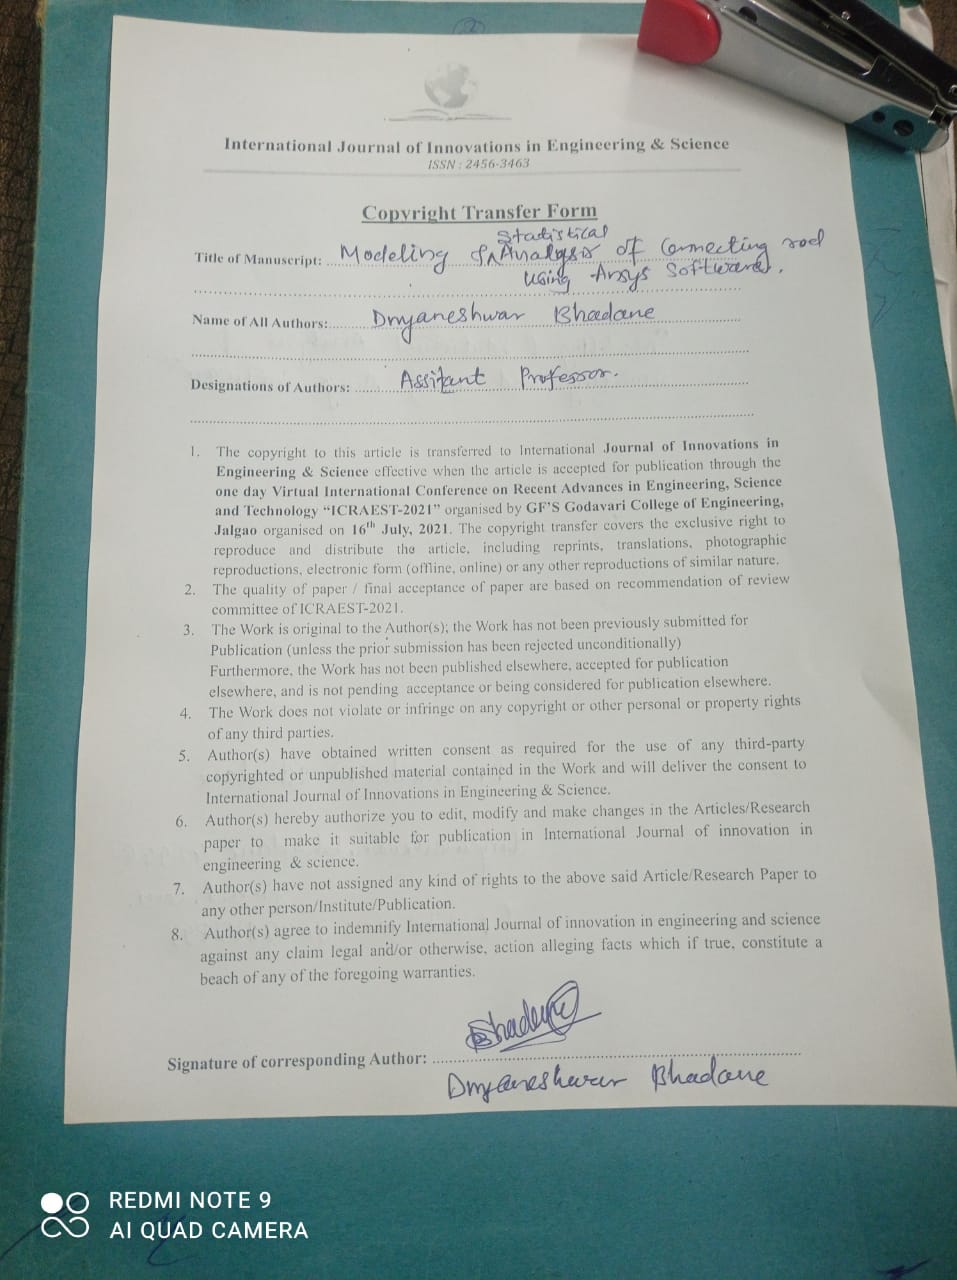 International Journal of Innovations in Engineering & Science
ISSN : 2456-3463
Copyright Transfer Form
Statistical
Title of Manuscript: Modeling & ^ Analysis of Connecting rod
using Ansys Software.
Name of All Authors: Dnyaneshwar Bhadane
Designations of Authors: Assitant Professor.
1. The copyright to this article is transferred to International Journal of Innovations in
Engineering & Science effective when the article is accepted for publication through the
one day Virtual International Conference on Recent Advances in Engineering, Science
and Technology “ICRAEST-2021” organised by GF'S Godavari College of Engineering,
Jalgao organised on 16th July, 2021. The copyright transfer covers the exclusive right to
reproduce and distribute the article, including reprints, translations, photographic
reproductions, electronic form (offline, online) or any other reproductions of similar nature.
2. The quality of paper / final acceptance of paper are based on recommendation of review
committee of ICRAEST-2021.
3. The Work is original to the Author(s); the Work has not been previously submitted for
Publication (unless the prior submission has been rejected unconditionally)
Furthermore, the Work has not been published elsewhere, accepted for publication
elsewhere, and is not pending acceptance or being considered for publication elsewhere.
4. The Work does not violate or infringe on any copyright or other personal or property rights
of any third parties.
5. Author(s) have obtained written consent as required for the use of any third-party
copyrighted or unpublished material contained in the Work and will deliver the consent to
International Journal of Innovations in Engineering & Science.
6. Author(s) hereby authorize you to edit, modify and make changes in the Articles/Research
paper to make it suitable for publication in International Journal of innovation in
engineering & science.
7. Author(s) have not assigned any kind of rights to the above said Article/Research Paper to
any other person/Institute/Publication.
8. Author(s) agree to indemnify International Journal of innovation in engineering and science
against any claim legal and/or otherwise, action alleging facts which if true, constitute a
beach of any of the foregoing warranties.
Signature of corresponding Author:
Dnyaneshwar Bhadane
REDMI NOTE 9
AI QUAD CAMERA